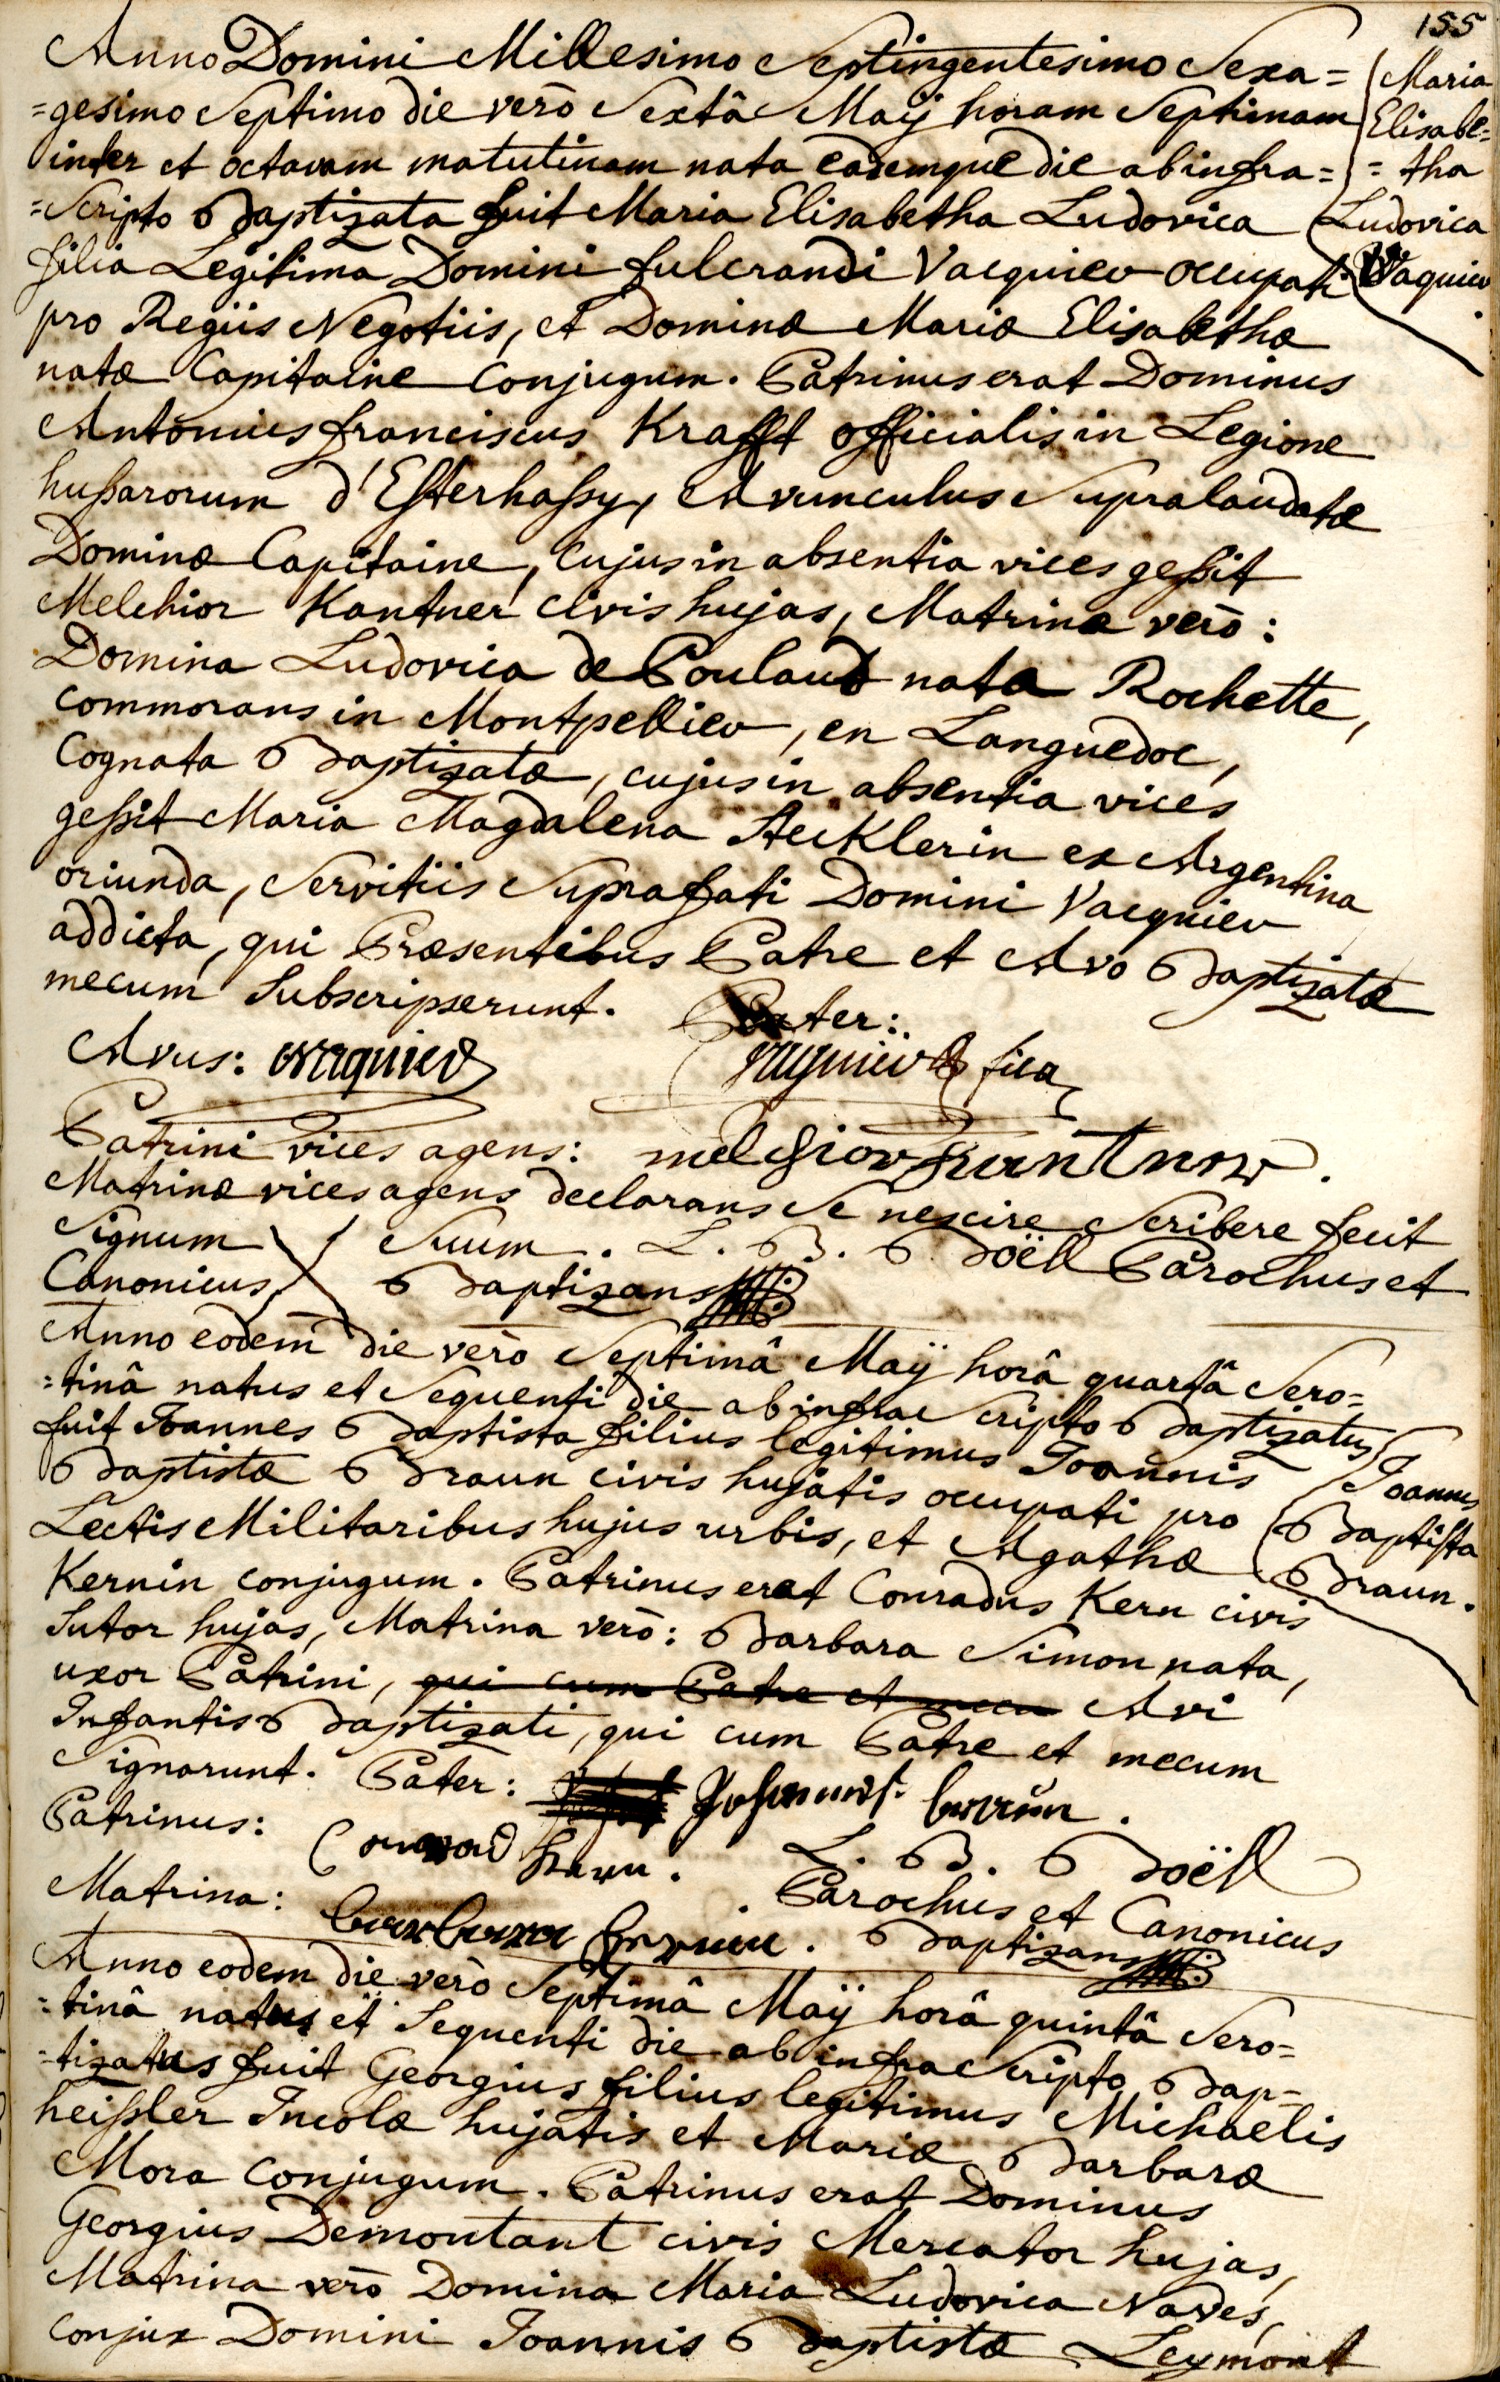 155
Anno Domini Millesimo Septingentesimo Sexa=
=gesimo Septimo die verò Sextâ Maÿ horam Septimam
inter et octavam matutinam nata eademque die ab infra=
=Scripto Baptizata fuit Maria Elisabetha Ludovica
filia Legitima Domini fulcrandi Vacquier occupati
pro Regiis Negotiis, et Dominæ Mariæ Elisabethæ
natæ Capitaine Conjugum. Patrinus erat Dominus
Antonius franciscus Krafft officialis in Legione
hußarorum d'Esterhaßy, Avunculus Supralaudatæ
Dominæ Capitaine, cujus in absentia vices geßit
Melchior Kantner civis hujas, Matrina verò:
Domina Ludovica de Poulaud nata Rochette,
commorans in Montpellier, en Languedoc,
Cognata Baptizatæ, cujus in absentia vices
geßit Maria Magdalena Stecklerin ex Argentina
oriunda, Servitiis Suprafati Domini Vacquier
addicta, qui Præsentibus Patre et Avo Baptizatæ
mecum Subscripserunt. Pater:
Avus: Vacquier
Patrini vices agens: melchior Kantner.
Matrinæ vices agens declarans Se nescire Scribere fecit
Signum Suum. L. B. Boëll Parochus et
Canonicus Baptizans
Maria
Elisabe=
=tha
Ludovica
Vaquier
Anno eodem die verò Septimâ Maÿ horâ quartâ Sero=
=tinâ natus et Sequenti die ab infra Scripto Baptizatus
fuit Joannes Baptista filius legitimus Joannis
Baptistæ Braun civis hujatis occupati pro
Lectis Militaribus hujus urbis, et Agathæ
Kernin conjugum. Patrinus erat Conradus Kern civis
Sutor hujas, Matrina verò: Barbara Simon nata,
uxor Patrini, qui cum Patre et mecu Avi
Infantis Baptizati, qui cum Patre et mecum
Signarunt. Pater: Johannes braun.
Patrinus: Conrad Kern. L. B. Boëll
Parochus et Canonicus
Matrina: barbara Kernin. Baptizans
Joannes
Baptista
Braun.
Anno eodem die verò Septimâ Maÿ horâ quintâ Sero=
=tinâ natus et Sequenti die ab infra Scripto Bap=
=tizatus fuit Georgius filius legitimus Michaelis
heißler Incolæ hujatis et Mariæ Barbaræ
Mora conjugum. Patrinus erat Dominus
Georgius Demontant civis Mercator hujas,
Matrina verò Domina Maria Ludovica Nades,
conjux Domini Joannis Baptistæ Leymont